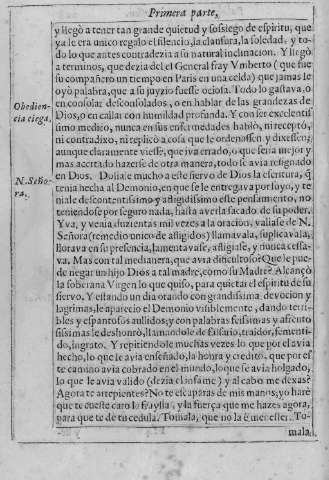 Primera parte,
y llegò a tener tan grande quietud y sossiego de espiritu, que
ya le era unico regalo el silencio, la clausura, la soledad, y to-
do lo que antes contradezia a su natural inclinacion. Y llegò
a terminos, que dezia del el General fray Vmberto (que fue
su compañero un tiempo en Paris en una celda) que jamas le
oyò palabra, que a su juyzio fuesse ociosa. Todo lo gastava, o
en consolar desconsolados, o en hablar de las grandezas de
Dios, o en callar con humildad profunda. Y con ser excelentis
simo medico, nunca en sus enfermedades hablò, ni receptò,
ni contradixo, ni replicò a cosa que le ordenossen, y dixessen:
aunque claramente viesse, que iva errado, o que seria mejor y
mas acertado hazerse de otra manera, todo se avia resignado
en Dios. Doliale mucho a este siervo de Dios la escritura, q̃
tenia hecha al Demonio, en que se le entregava por suyo, y te
niale descontentissimo y afligidissimo este pensamiento, no
teniendose por seguro nada, hasta averla sacado de su poder.
Yva, y venia suzientas mil vezes a la oracion, valiase de N.
Señora (remedio unico de afligidos) llamavala, suplicavala,
llorava en su presencia, lamentavase, afligiase, y nunca cessa-
va. Mas con tal medianera, que avia dificultoso? Que le pue-
de negar un hijo Dios a tal madre, como su Madre? Alcançò
la soberana Virgen lo que quiso, para quietar el espiritu de su
siervo. Y estando un dia orando con grandissima devocion y
lagrimas, le aparecio el Demonio visiblemente, dando terri-
bles y espantosos aullidos, y con palabras feissimas y afrento
sissimas le deshonrò, llamandole de falsario, traidor, fementi-
do, ingrato. Y repitiendole muchas vezes lo que por el avia
hecho, lo que le avia enseñado, la honra y credito, que por es
te camino avia cobrado en el mundo, lo que se avia holgado,
lo que le avia valido (dezia el infame) y al cabo me dexas?
Agora te arrepientes? No te escaparas de mis manos, yo harè
que te cueste caro la frayllia, y la fuerça que me hazes agora,
para que te dè tu cedula. Tomala, que no la è menester. To-
mala,
Obedien-
cia ciega.
N. Seño-
ra.